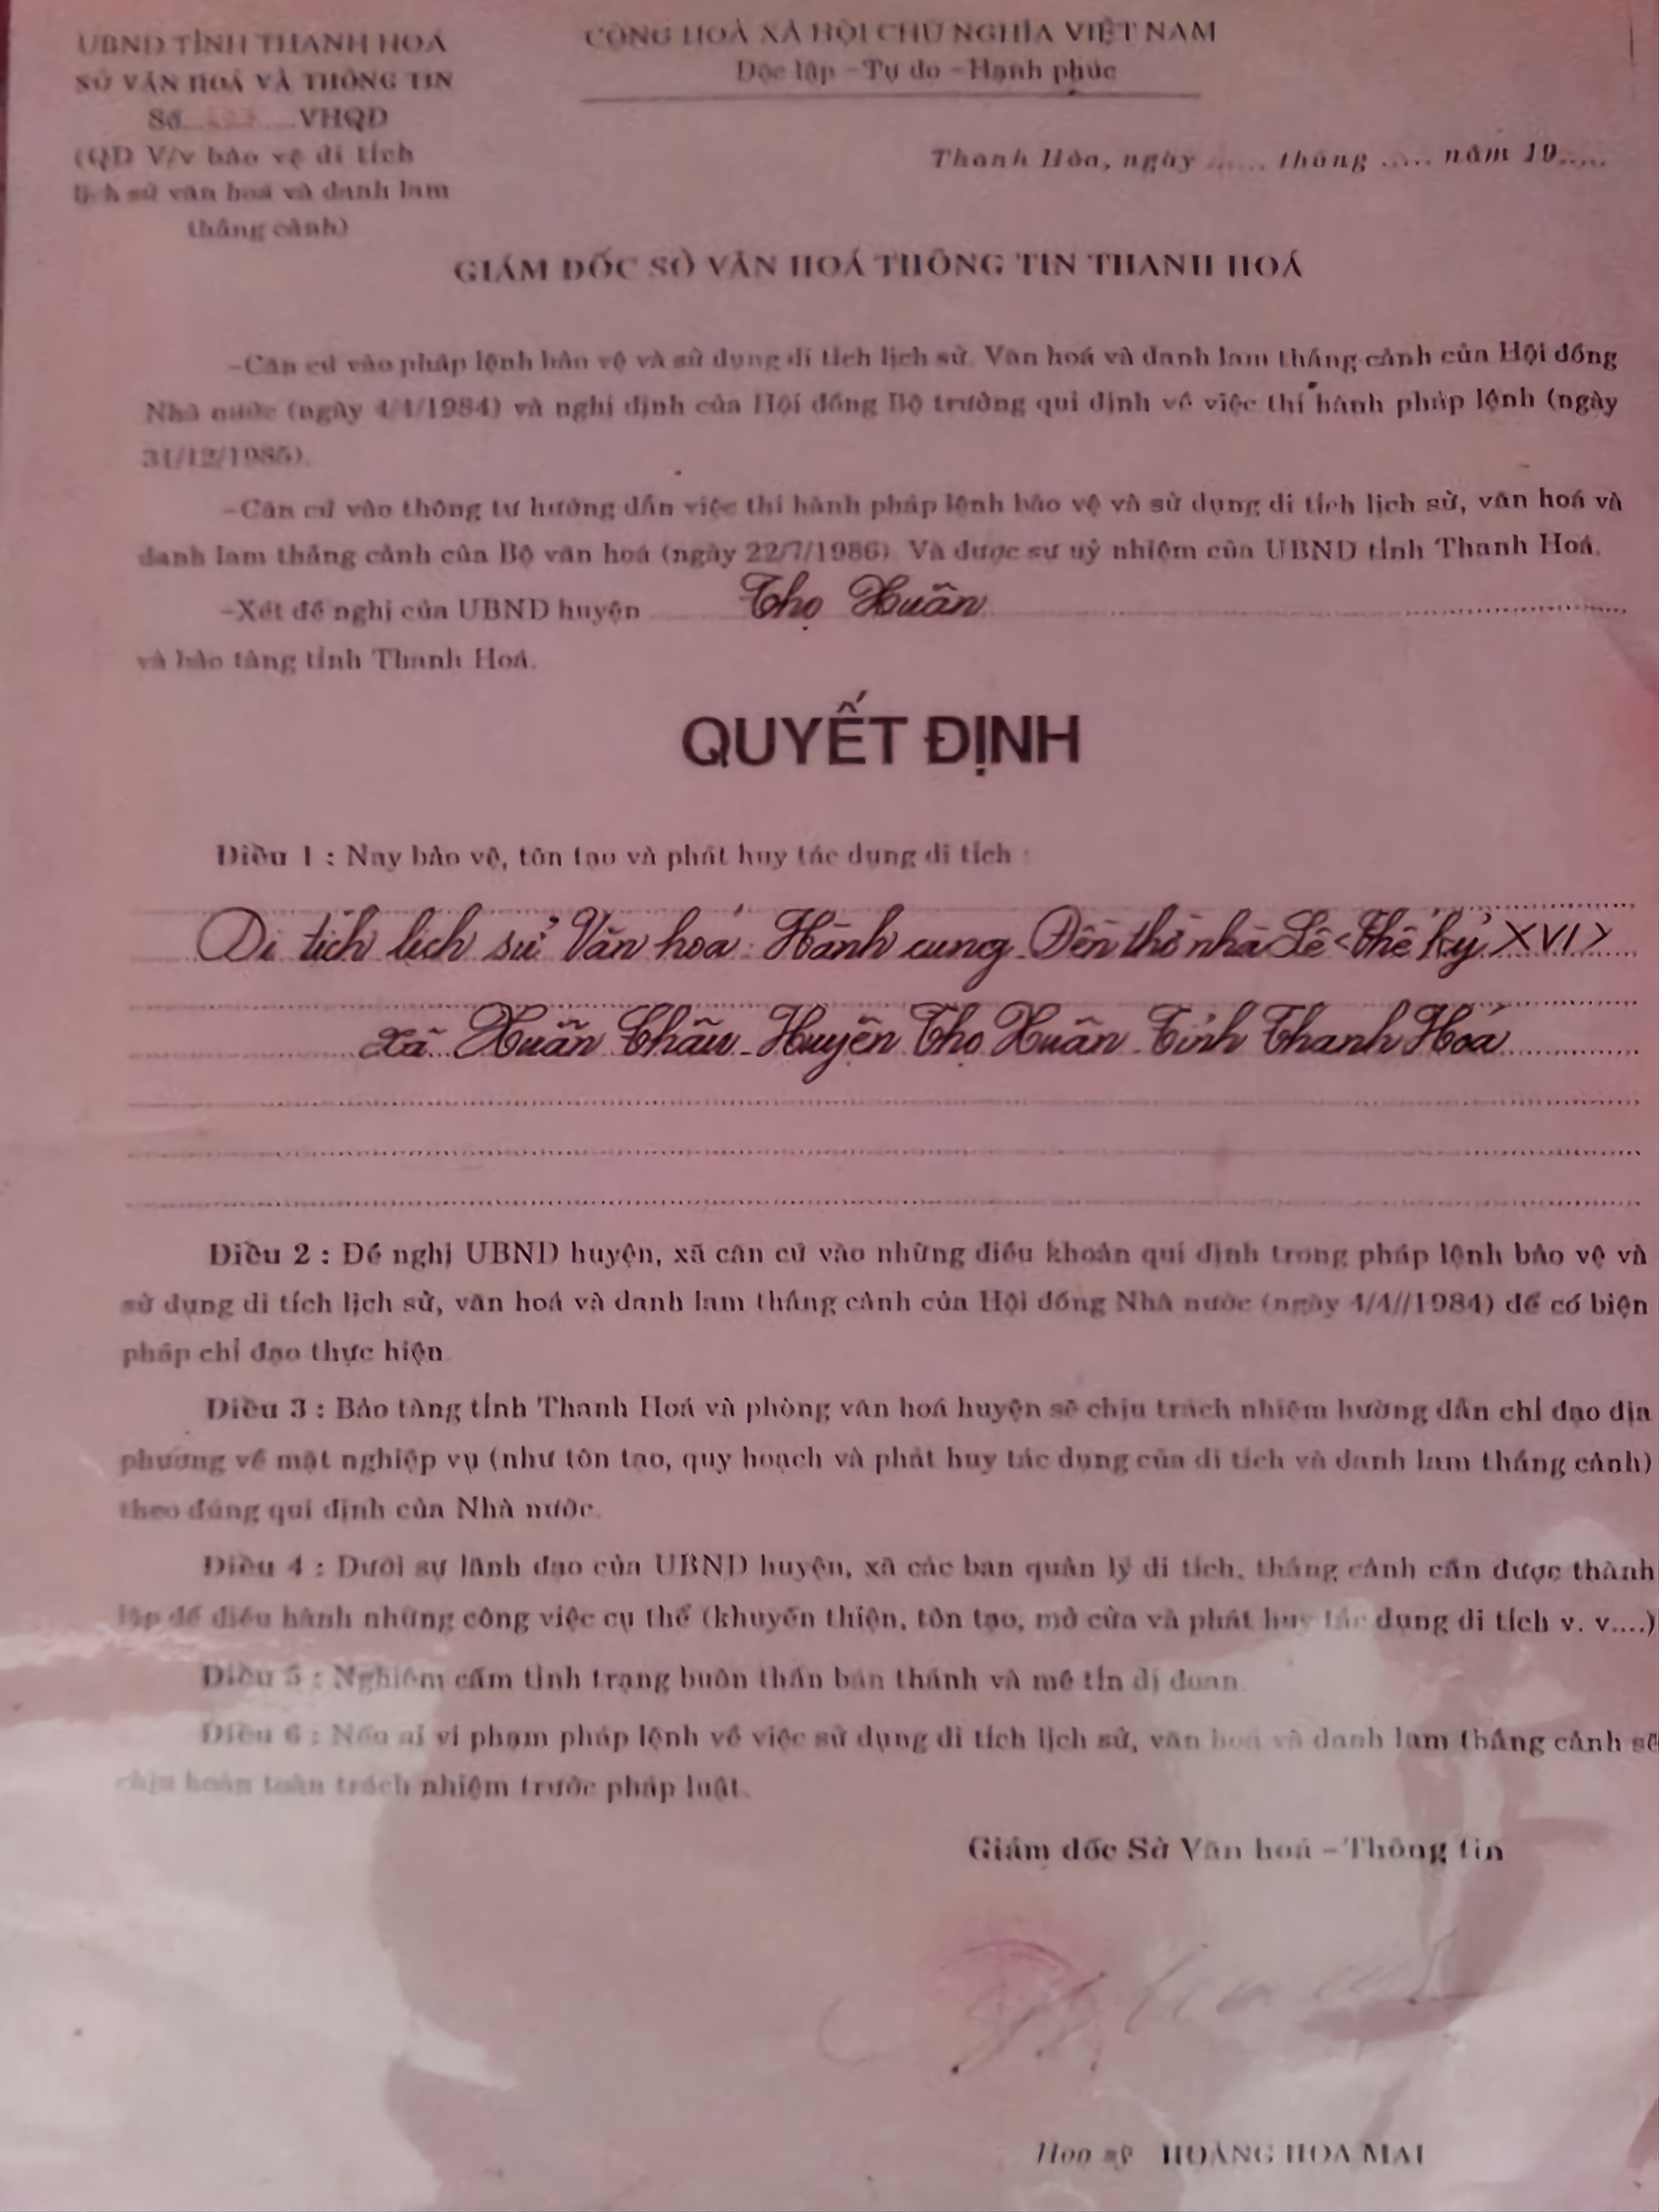 UBND TỈNH THANH HOÁ
SỞ VĂN HOÁ VÀ THÔNG TIN
Số ........ VHQĐ
(QĐ V/v bảo vệ di tích
lịch sử văn hoá và danh lam
thắng cảnh)
CỘNG HOÀ XÃ HỘI CHỦ NGHĨA VIỆT NAM
Độc lập - Tự do - Hạnh phúc
Thanh Hóa, ngày ...... tháng ..... năm 19.....
GIÁM ĐỐC SỞ VĂN HOÁ THÔNG TIN THANH HOÁ
-Căn cứ vào pháp lệnh bảo vệ và sử dụng di tích lịch sử. Văn hoá và danh lam thắng cảnh của Hội đồng
Nhà nước (ngày 4/4/1984) và nghị định của Hội đồng Bộ trưởng qui định về việc thi hành pháp lệnh (ngày
31/12/1985).
-Căn cứ vào thông tư hướng dẫn việc thi hành pháp lệnh bảo vệ và sử dụng di tích lịch sử, văn hoá và
danh lam thắng cảnh của Bộ văn hoá (ngày 22/7/1986). Và được sự uỷ nhiệm của UBND tỉnh Thanh Hoá.
-Xét đề nghị của UBND huyện Thọ Xuân
và bảo tàng tỉnh Thanh Hoá.
QUYẾT ĐỊNH
Điều 1 : Nay bảo vệ, tôn tạo và phát huy tác dụng di tích :
Di tích lịch sử Văn hoá: Hành cung - Đền thờ nhà Lê <Thế kỷ XVI>
xã Xuân Châu - Huyện Thọ Xuân - Tỉnh Thanh Hóa
Điều 2 : Đề nghị UBND huyện, xã căn cứ vào những điều khoản qui định trong pháp lệnh bảo vệ và
sử dụng di tích lịch sử, văn hoá và danh lam thắng cảnh của Hội đồng Nhà nước (ngày 4/4//1984) để có biện
pháp chỉ đạo thực hiện.
Điều 3 : Bảo tàng tỉnh Thanh Hoá và phòng văn hoá huyện sẽ chịu trách nhiệm hướng dẫn chỉ đạo địa
phương về mặt nghiệp vụ (như tôn tạo, quy hoạch và phát huy tác dụng của di tích và danh lam thắng cảnh)
theo đúng qui định của Nhà nước.
Điều 4 : Dưới sự lãnh đạo của UBND huyện, xã các ban quản lý di tích, thắng cảnh cần được thành
lập để điều hành những công việc cụ thể (khuyến thiện, tôn tạo, mở cửa và phát huy tác dụng di tích v. v....)
Điều 5 : Nghiêm cấm tình trạng buôn thần bán thánh và mê tín dị đoan.
Điều 6 : Nếu ai vi phạm pháp lệnh về việc sử dụng di tích lịch sử, văn hoá và danh lam thắng cảnh sẽ
chịu hoàn toàn trách nhiệm trước pháp luật.
Giám đốc Sở Văn hoá - Thông tin
Hoạ sỹ HOÀNG HOA MAI